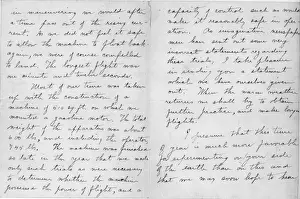 in maneuvering we would after
a time pass out of the rising cur-
rent. As we did not feel it safe
to allow the machine to float back
again, we were of course compelled
to land. The longest flight was
one minute and twelve seconds.
Most of our time was taken
up with the construction of a
machine of 510 sq ft on which we
mounted a gasoline motor. The total
weight of the apparatus was about
lbs, including the operator,
745 lbs. The machine was finished
so late in the year that we made
only such trials as were necessary
to determine whether the machine
possessed the power of flight, and a
capacity of control such as would
make it reasonably safe in oper-
ation. As imaginative newspaper
men sent out some very
incorrect statements regarding
these trials, I take pleasure
in sending you a statement
which we have ourselves given
out. When the warm weather
returns we shall try to obtain
further practice, and make longer
flights.
I presume that this time
of year is much more favorable
for experimenting on your side
of the earth than on this and
that we may soon hope to hear